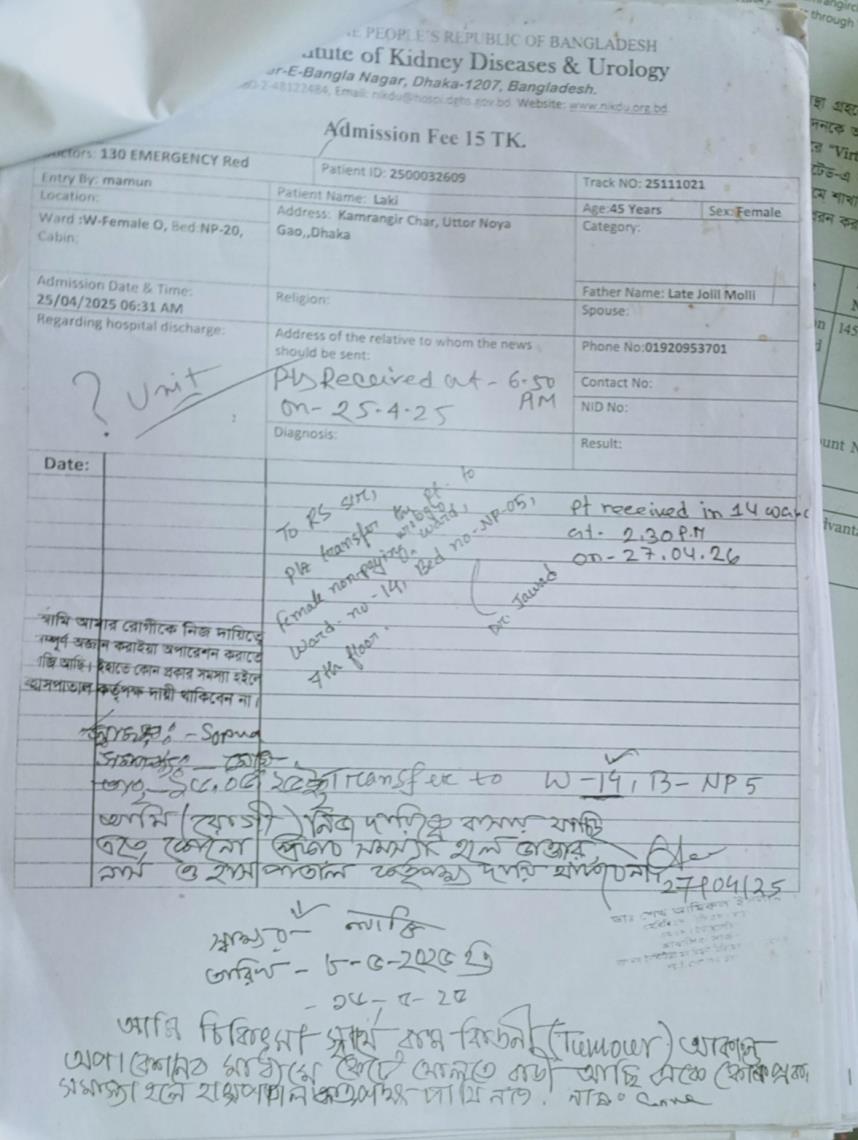 E PEOPLE'S REPUBLIC OF BANGLADESH
tute of Kidney Diseases & Urology
ar-E-Bangla Nagar, Dhaka-1207, Bangladesh.
-2-48122484, Email: nikdu@hospi.dghs.gov.bd Website: www.nikdu.org.bd
Admission Fee 15 TK.
ctors: 130 EMERGENCY Red
Patient ID: 2500032609
Track NO: 25111021
Entry By: mamun
Patient Name: Laki
Age:45 Years
Sex: Female
Location:
Address: Kamrangir Char, Uttor Noya
Gao,,Dhaka
Category:
Ward :W-Female O, Bed:NP-20,
Cabin:
Admission Date & Time:
25/04/2025 06:31 AM
Religion:
Father Name: Late Jolil Molli
Spouse:
Regarding hospital discharge:
Address of the relative to whom the news
should be sent:
Phone No:01920953701
Contact No:
NID No:
? Unit
Pt Received at - 6.50
AM
on - 25.4.25
Diagnosis:
Result:
Date:
To RS sir,
Plz transfer the pt. to
female non-paying ward,
Ward. no - 14, Bed no-NP-05,
4th floor.
Dr. Jawad
Pt received in 14 ward
at - 2.30 P.M
on - 27.04.26
আমি আমার রোগীকে নিজ দায়িত্বে
সম্পূর্ণ অজ্ঞান করাইয়া অপারেশন করাতে
রাজি আছি। ইহাতে কোন প্রকার সমস্যা হইলে
হাসপাতাল কর্তৃপক্ষ দায়ী থাকিবেন না।
স্বাক্ষর: - Sopna
Transfer to W-14, B-NP5
আমি (রোগী) নিজ দায়িত্বে বাসায় যাচ্ছি
এতে কোনো প্রকার সমস্যা হলে ডাক্তার,
নার্স ও হাসপাতাল কতৃপক্ষ দায়ি থাকবেনা
27/04/25
স্বাক্ষর - লাকি
তারিখ - ৮-৫-২০২৫
আমি চিকিৎসা স্বার্থে বাম কিডনী (Tumour)
অপারেশনের মাধ্যমে কেটে ফেলতে রাজী আছি এতে কোন প্রকার
সমস্যা হলে হাসপাতাল কতৃপক্ষ দায়ি নয়.